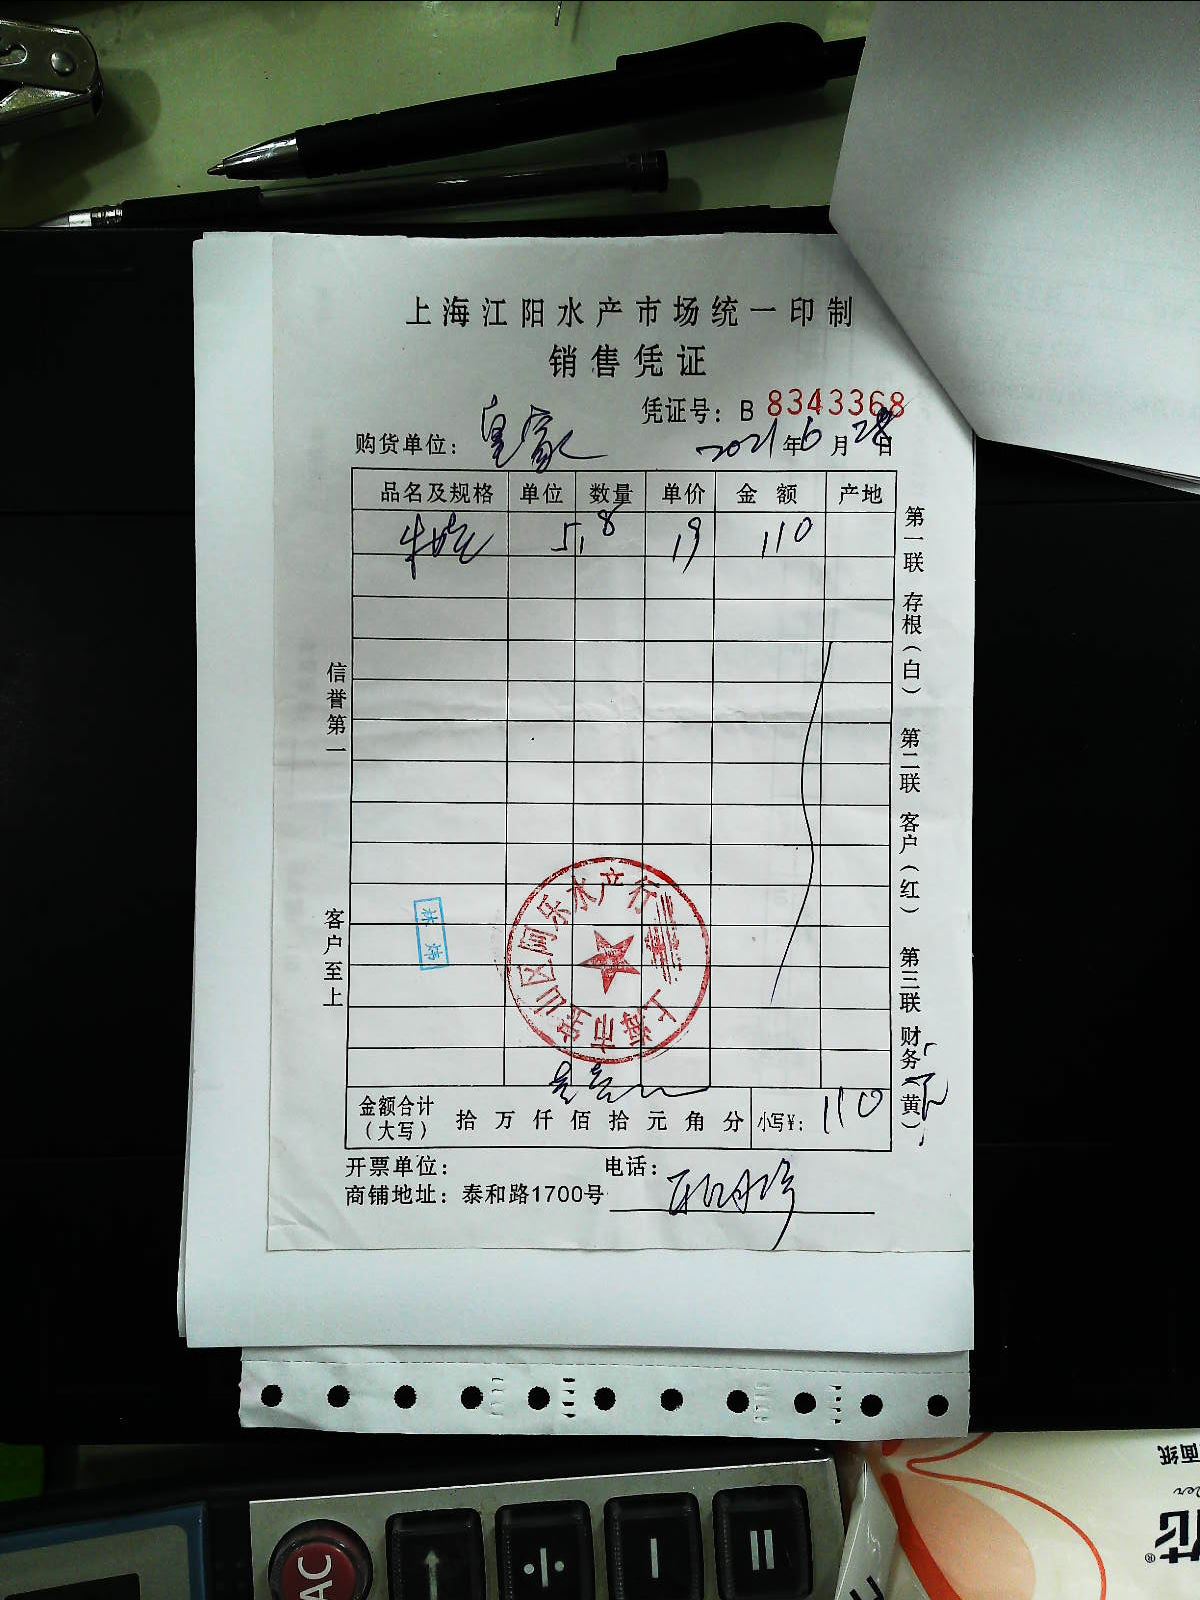 上海江阳水产市场统一印制
销售凭证
凭证号：B 8343368
购货单位：皇家 2021年6月28日
品名及规格 单位 数量 单价 金额 产地
牛蛙 5.8 19 110
信誉第一
客户至上
第一联 存根（白） 第二联 客户（红） 第三联 财务（黄）
上海市宝山区阿乐水产行
金额合计（大写） 拾 万 仟 佰 拾 元 角 分 小写¥： 110
开票单位： 电话：
商铺地址：泰和路1700号
AC
÷
−
=
面纸
花
®